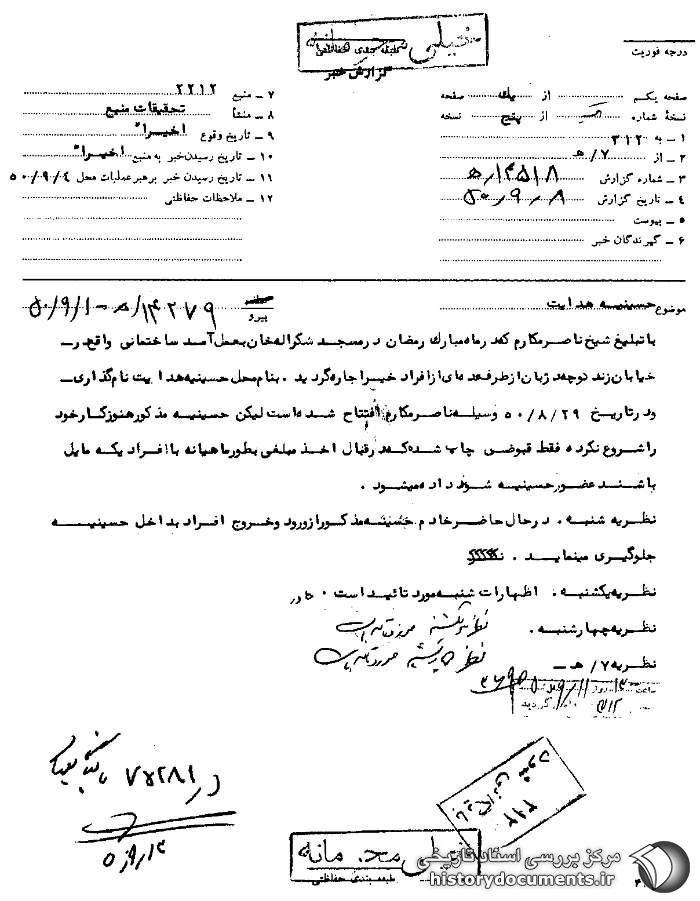 خیلی محرمانه
طبقه بندی حفاظتی
گزارش خبر
درجه فوریت
صفحه یکم از یک صفحه
نسخه شماره از پنج نسخه
۱ ـ به ۳۱۲
۲ ـ از ۷/ه‍
۳ ـ شماره گزارش ۱۴۵۱۸/ه‍
۴ ـ تاریخ گزارش ۵۰/۹/۸
۵ ـ پیوست
۶ ـ گیرندگان خبر
۷ ـ منبع ۲۲۱۲
۸ ـ منشأ تحقیقات منبع
۹ ـ تاریخ وقوع اخیراً
۱۰ ـ تاریخ رسیدن خبر به منبع اخیراً
۱۱ ـ تاریخ رسیدن خبر برهبر عملیات محل ۵۰/۹/۴
۱۲ ـ ملاحظات حفاظتی
موضوع حسینیه هدایت
پیرو ۱۴۲۷۹/ه‍ - ۵۰/۹/۱
با تبلیغ شیخ ناصر مکارم که در ماه مبارک رمضان در مسجد شکراله خان بعمل آمد ساختمانی واقع در
خیابان زند کوچه ژبان از طرف عده ای از افراد خیر اجاره گردید . بنام محل حسینیه هدایت نام گذاری
و در تاریخ ۵۰/۸/۲۹ وسیله ناصر مکارم افتتاح شده است لیکن حسینیه مذکور هنوز کار خود
را شروع نکرده فقط قبوضی چاپ شده که در قبال اخذ مبلغی بطور ماهیانه با افرادیکه مایل
باشند عضو حسینیه شوند داده میشود .
نظریه شنبه . در حال حاضر خادم حسینیه مذکور از ورود و خروج افراد بداخل حسینیه
جلوگیری مینماید .
نظریه یکشنبه . اظهارات شنبه مورد تائید است .
نظریه چهارشنبه . نظریه یکشنبه مورد تائید است
نظریه ۷/ه‍ ـ نظریه چهارشنبه مورد تائید است
ساعت روز ۵۰/۹/۱۱
۳۱۲ گردید
در ۷۵۲۸۱ بایگانی
۵۰/۹/۱۳
۳۱۲
خیلی محرمانه
طبقه بندی حفاظتی
مرکز بررسی اسناد تاریخی
historydocuments.ir